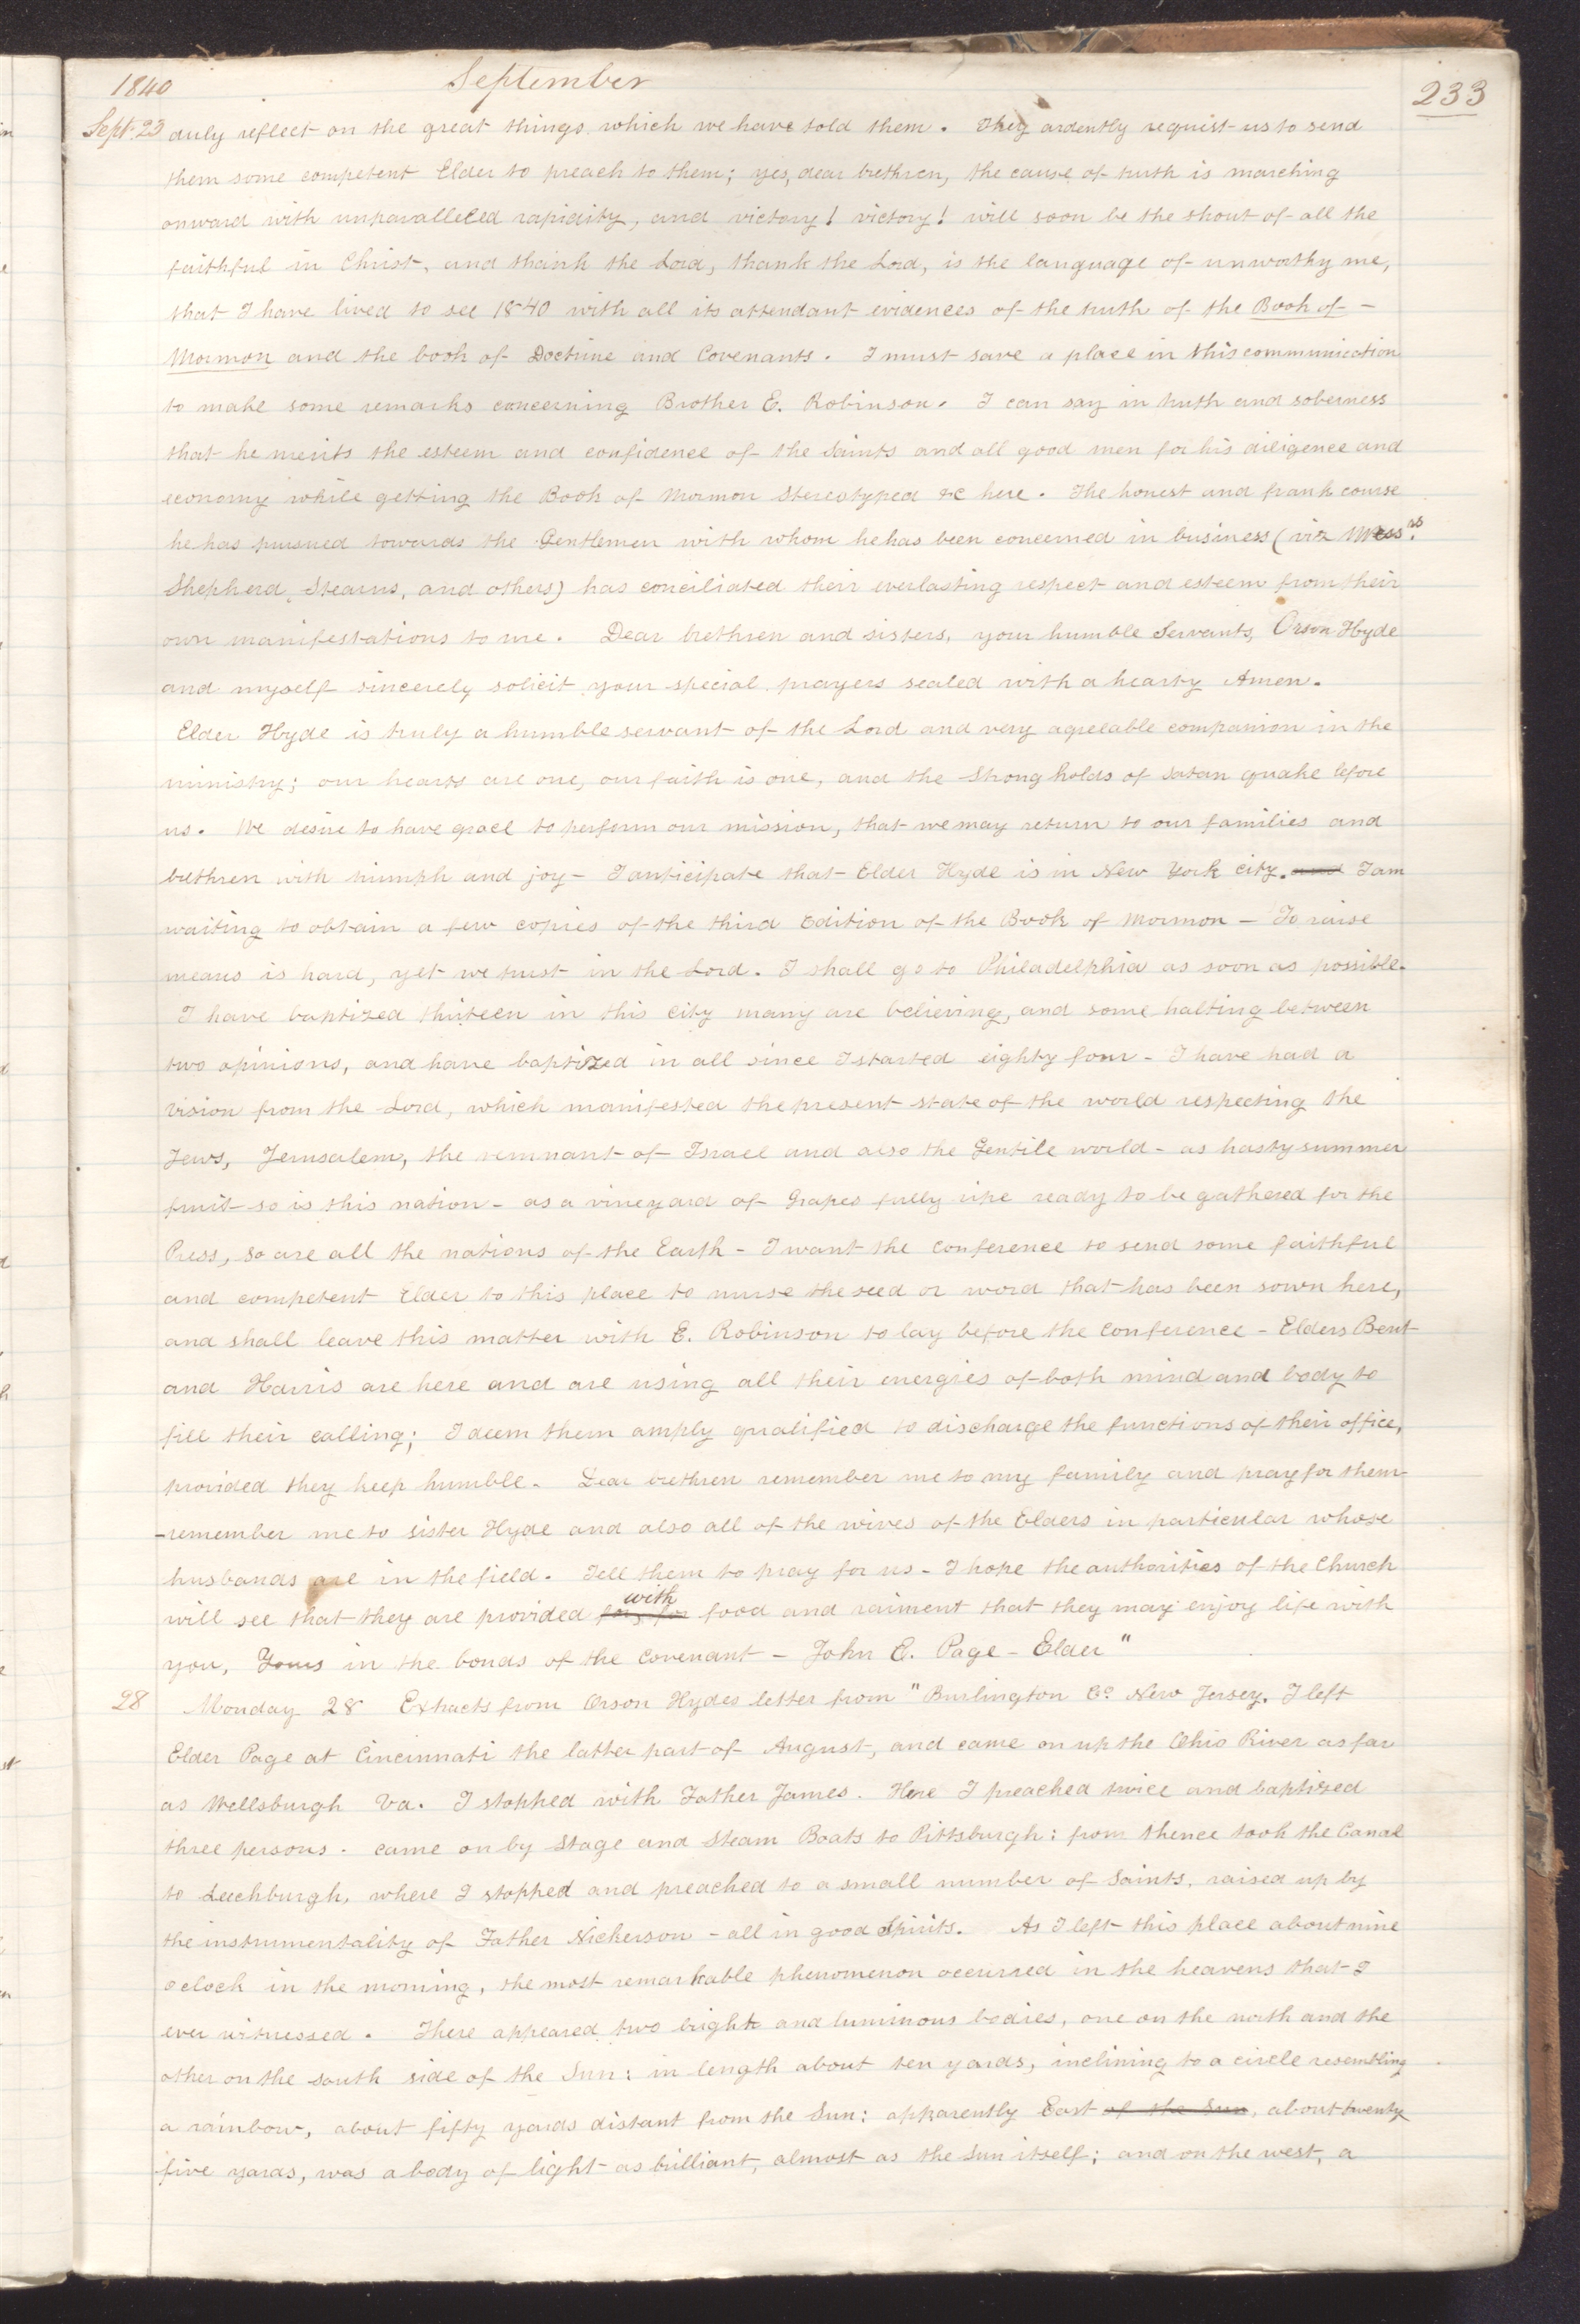 1840 September 233
Sept. 23 duly reflect on the great things which we have told them. They ardently request us to send
them some competent Elder to preach to them; yes, dear brethren, the cause of truth is marching
onward with unparalleled rapidity, and victory! victory! will soon be the shout of all the
faithful in Christ, and thank the Lord, thank the Lord, is the language of unworthy me,
that I have lived to see 1840 with all its attendant evidences of the truth of the Book of -
Mormon and the book of Doctrine and Covenants. I must save a place in this communication
to make some remarks concerning Brother E. Robinson. I can say in truth and soberness
that he merits the esteem and confidence of the Saints and all good men for his diligence and
economy while getting the Book of Mormon Stereotyped &c here. The honest and frank course
he has pursued towards the Gentlemen with whom he has been concerned in business (viz Messrs.
Shepherd, Stearns, and others) has conciliated their everlasting respect and esteem from their
own manifestations to me. Dear brethren and sisters, your humble Servants, Orson Hyde
and myself sincerely solicit your special prayers sealed with a hearty Amen.
Elder Hyde is truly a humble servant of the Lord and very agreeable companion in the
ministry; our hearts are one, our faith is one, and the strong holds of Satan quake before
us. We desire to have grace to perform our mission, that we may return to our families and
brethren with triumph and joy - I anticipate that Elder Hyde is in New York city. and I am
waiting to obtain a few copies of the third Edition of the Book of Mormon - To raise
means is hard, yet we trust in the Lord. I shall go to Philadelphia as soon as possible.
I have baptized thirteen in this city many are believing, and some halting between
two opinions, and have baptized in all since I started eighty four - I have had a
vision from the Lord, which manifested the present state of the world respecting the
Jews, Jerusalem, the remnant of Israel and also the Gentile world - as hasty summer
fruit so is this nation - as a vineyard of Grapes fully ripe ready to be gathered for the
Press, so are all the nations of the Earth - I want the conference to send some faithful
and competent Elder to this place to nurse the seed or word that has been sown here,
and shall leave this matter with E. Robinson to lay before the conference - Elders Bent
and Harris are here and are using all their energies of both mind and body to
fill their calling; I deem them amply qualified to discharge the functions of their office,
provided they keep humble. Dear brethren remember me to my family and pray for them-
-remember me to sister Hyde and also all of the wives of the Elders in particular whose
husbands are in the field. Tell them to pray for us - I hope the authorities of the Church
will see that they are provided for, for with food and raiment that they may enjoy life with
you, Yours in the bonds of the covenant - John E. Page - Elder"
28 Monday 28 Extracts from Orson Hydes letter from "Burlington Co. New Jersey. I left
Elder Page at Cincinnati the latter part of August, and came on up the Ohio River as far
as Wellsburgh Va. I stopped with Father James. Here I preached twice and baptized
three persons. came on by Stage and Steam Boats to Pittsburgh: from thence took the Canal
to Leechburgh, where I stopped and preached to a small number of Saints, raised up by
the instrumentality of Father Nickerson - all in good Spirits. As I left this place about nine
oclock in the morning, the most remarkable phenomenon occurred in the heavens that I
ever witnessed. There appeared two bright and luminous bodies, one on the north and the
other on the south side of the Sun: in length about ten yards, inclining to a circle resembling
a rainbow, about fifty yards distant from the Sun; apparently East of the Sun, about twenty
five yards, was a body of light as brilliant, almost as the Sun itself; and on the west, a